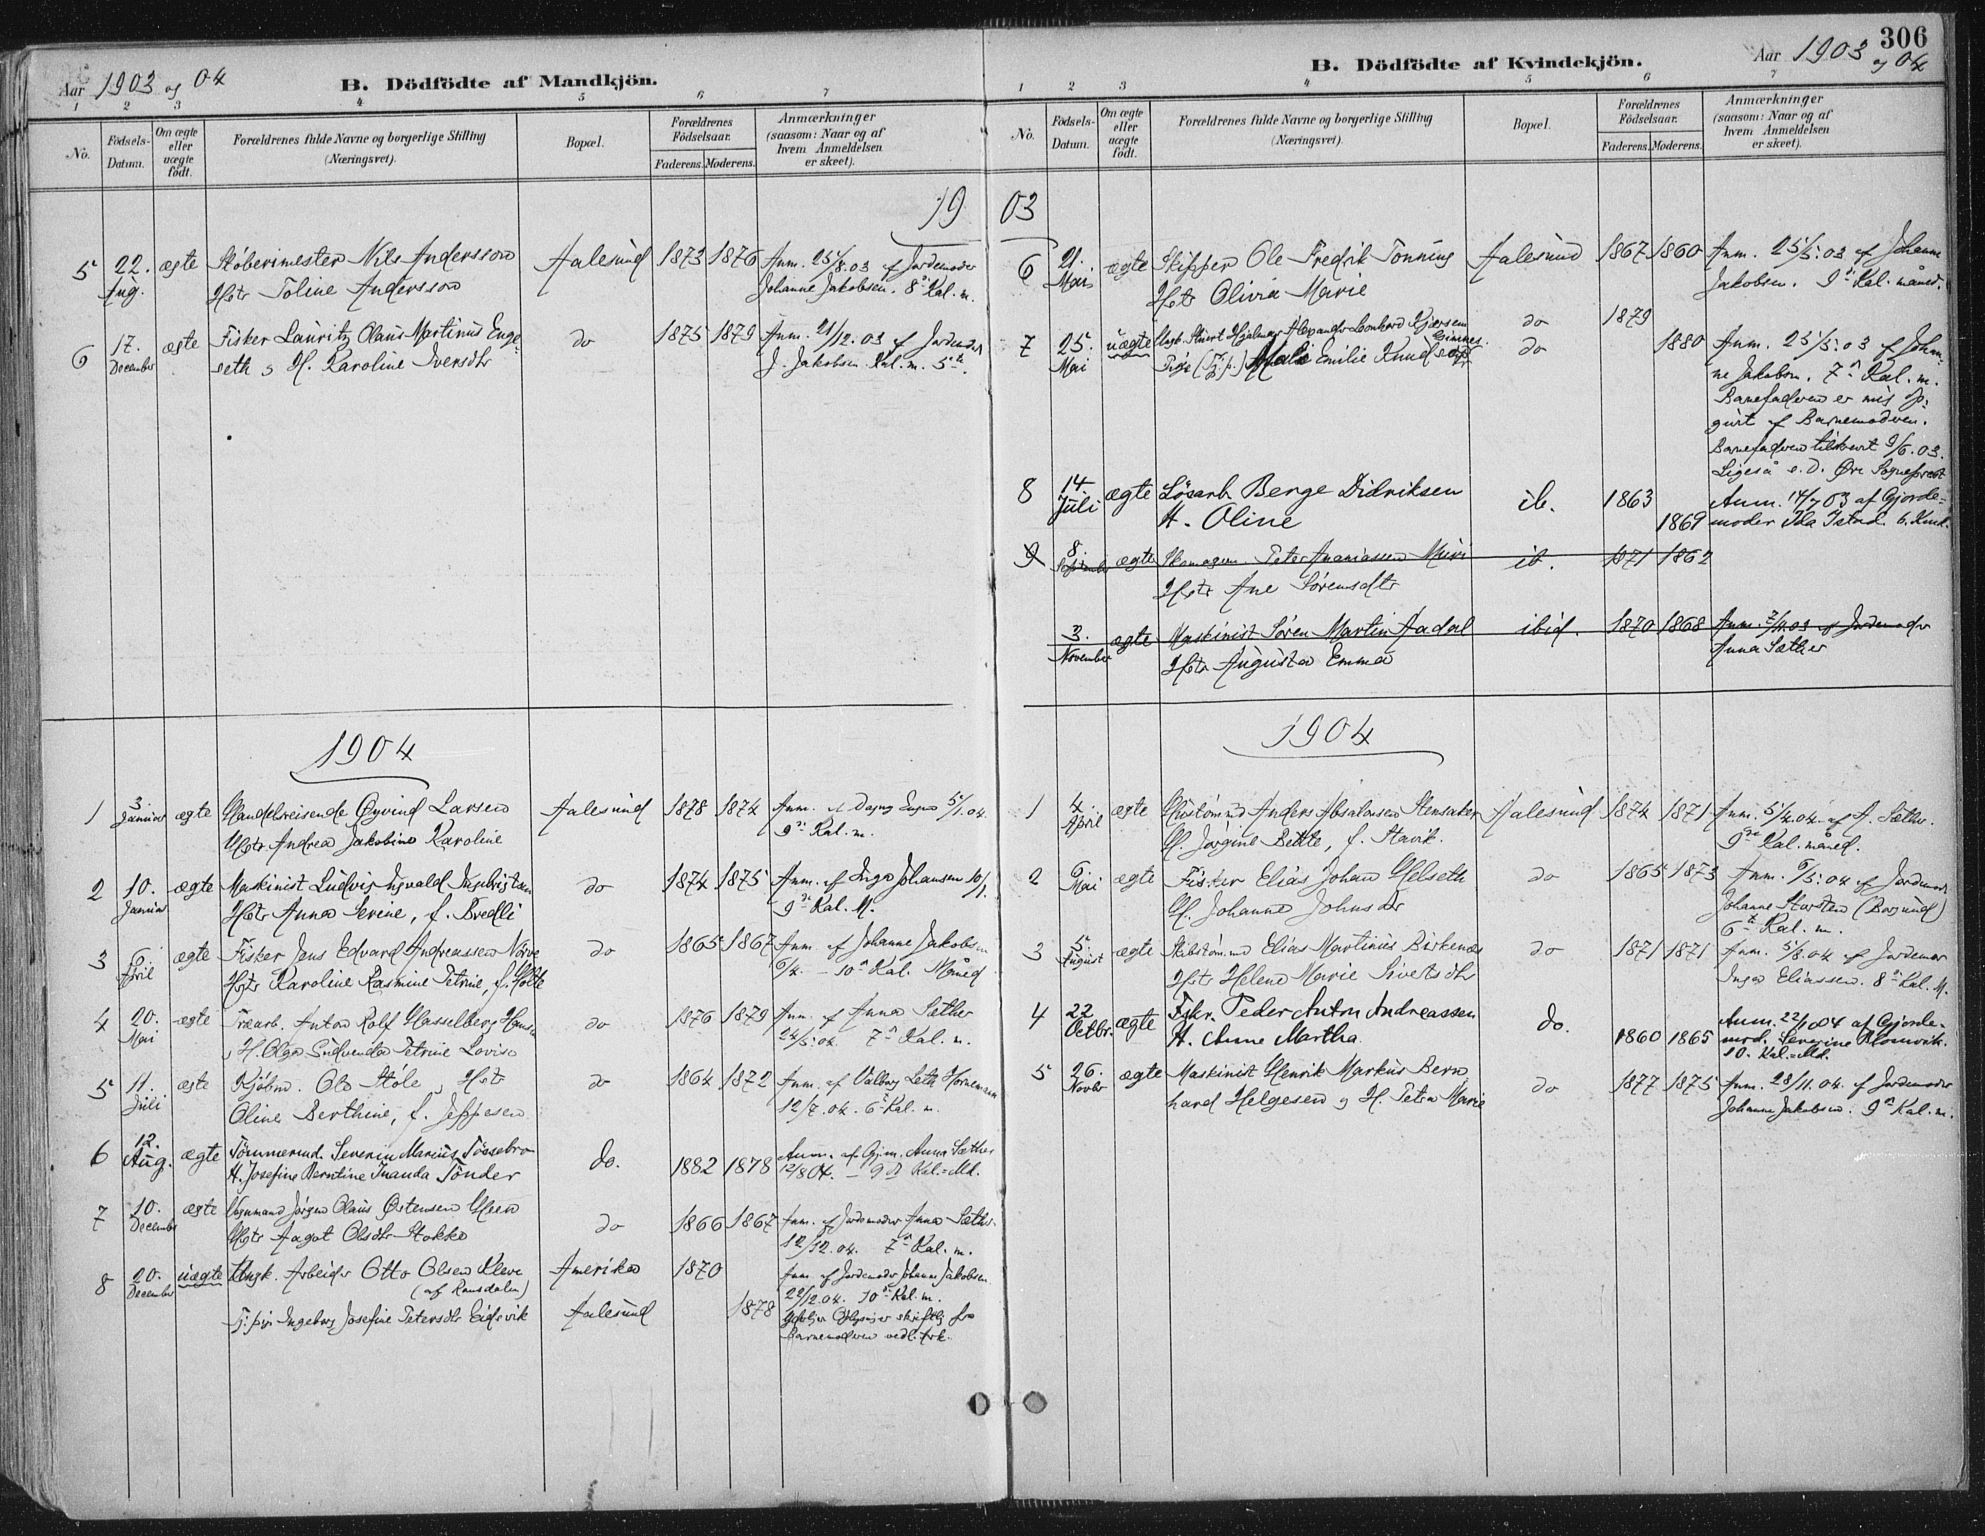 Aar 1903 og 04
B. Dödfödte af Mandkjön.
1 2 3 4 5 6 7
No.
Födsels-
Datum.
Om ægte
eller
uægte
födt.
Forældrenes fulde Navne og borgerlige Stilling
(Næringsvei).
Bopæl.
Forældrenes
Födselsaar.
Faderens. Moderens.
Anmærkninger
(saasom: Naar og af
hvem Anmeldelsen
er skeet).
19
5 22. Aug. ægte Nils Andersson Aalesund 1873 1876 Anm. 25/8.03 af Jordemoder
Hstr Toline Andersson Johanne Jakobsen. 8 Kal. m.
6 17. December ægte Fisker Lauritz Olaus Martinus Enge- do 1875 1879 Anm. 21/12.03 af Jordemoder
seth og H. Karoline Iversdtr J. Jakobsen Kal. m. 5te.
1904
1 3. Januar ægte Handelsreisende Øyvind Larsen Aalesund 1878 1874 Anm. 5/1.04
Hstr Andrea Jakobine Karoline 9de Kal. m.
2 10. Januar ægte Maskinist Ludvig Ingvald do 1874 1875 Anm. af Inga Johansen 10/1.
Hstr Anna Severine, f. Bredli 9de Kal. M.
3 6. April ægte Fisker Jens Edvard Andreassen Nørve do 1865 1867 Anm. af Johanne Jakobsen
Hstr Karoline Rasmine Petrine, f. 6/4. 10 Kal. Måned
4 20. Mai ægte Træarb. Anton Rolf Hasselberg do 1876 1879 Anm. af Anna Sæther
H. Olga Petrine Lovise 24/5.04 7 Kal. m.
5 11. Juli ægte Kjøbm. Ole Støle, Hstr do 1864 1872 Anm. af Valborg
Oline Berthine, f. Jeppesen 12/7.04. 6 Kal. m.
6 12. Aug. ægte Tømmermd. Severin Marius Tøssebro do. 1882 1878 Anm. af Gjm. Anna Sæther
H. Josefine Berntine Tønder 12/8 04. – 9 Kal.-Md.
7 10. December ægte Jørgen Olaus Østensen do 1866 1867 Anm. af Jordemoder Anna Sæther
Hstr Aagot Olsdtr Stokke 12/12.04. 7 Kal. m.
8 20. December uægte Ungk. Arbeider Otto Olsen Kleve Amerika 1870 Anm. af Jordemoder Johanne Jakobsen.
(af Romsdalen) 22/12.04. 10 Kal. m.
Tj. pige Ingeborg Josefine Petersdtr Eidsvik Aalesund 1878
Barnemoderen
306
Aar 1903 og 04
B. Dödfödte af Kvindekjön.
1 2 3 4 5 6 7
No.
Födsels-
Datum.
Om ægte
eller
uægte
födt.
Forældrenes fulde Navne og borgerlige Stilling
(Næringsvei).
Bopæl.
Forældrenes
Födselsaar.
Faderens. Moderens.
Anmærkninger
(saasom: Naar og af
hvem Anmeldelsen
er skeet).
03
6 21. Mai ægte Skipper Ole Fredrik Tonning Aalesund 1867 1860 Anm. 25/5.03 af Johanne
Hstr Olivia Marie Jakobsen. 9 Kal. måned.
7 25. Mai uægte Ungk. Hjalmar Alexander Leonhard do 1879
Pige Emilie Knudsdtr do 1880 Anm. 25/5.03 af Johan-
ne Jakobsen. 7 Kal. m.
Barnefaderen er mig op-
givet af Barnemoderen.
Barnefaderen 9/6.03.
Sognepræst
8 14 Juli ægte Løsarb. Berge Didriksen ib. 1863 Anm. 14/7 03 af Gjorde-
H. Oline 1869 moder Ida
9 8. September ægte Skomagersv. Peter Ananiassen ib. 1871 1862
Hstr Ane Sørensdtr
3. November ægte Maskinist Søren Martin Aadal ibid. 1870 1868 Anm. 7/11.03 af Jordemoder
Hstr Augusta Emma Anna Sæther
1904
1 4. April ægte Anders Absalonsen Stensaker Aalesund 1874 1871 Anm. 5/4.04 af A. Sæther.
H. Jørgine f. Stavik. 9de Kal. måned.
2 6 Mai ægte Fisker Elias Johan Gjelseth do 1865 1873 Anm. 6/5.04 af Jordemoder
H. Johanne Johnsdtr Johanne (Borgund)
6te Kal. m.
3 5. August ægte Elias Martinus Birkenæs do 1871 1871 Anm. 5/8.04 af Jordemor
Hstr Helene Marie Sivertsdtr Inga Eliassen. 8 Kal. M.
4 22 Octbr. ægte Fskr. Peder Anton Andreassen do. 1860 1865 Anm. 22/10 04 af Gjorde-
H. Anne Martha mod. Severine
10. Kal.-Md.
5 26. Novbr ægte Maskinist Henrik Markus Bern- do 1877 1875 Anm. 28/11.04. af Jordemoder
hard Helgesen og H. Petra Marie Johanne Jakobsen. 9 Kal. m.